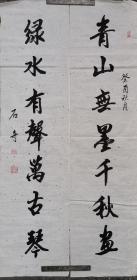 癸酉秋月
青山無墨千秋画
綠水有聲萬古琴
石奇